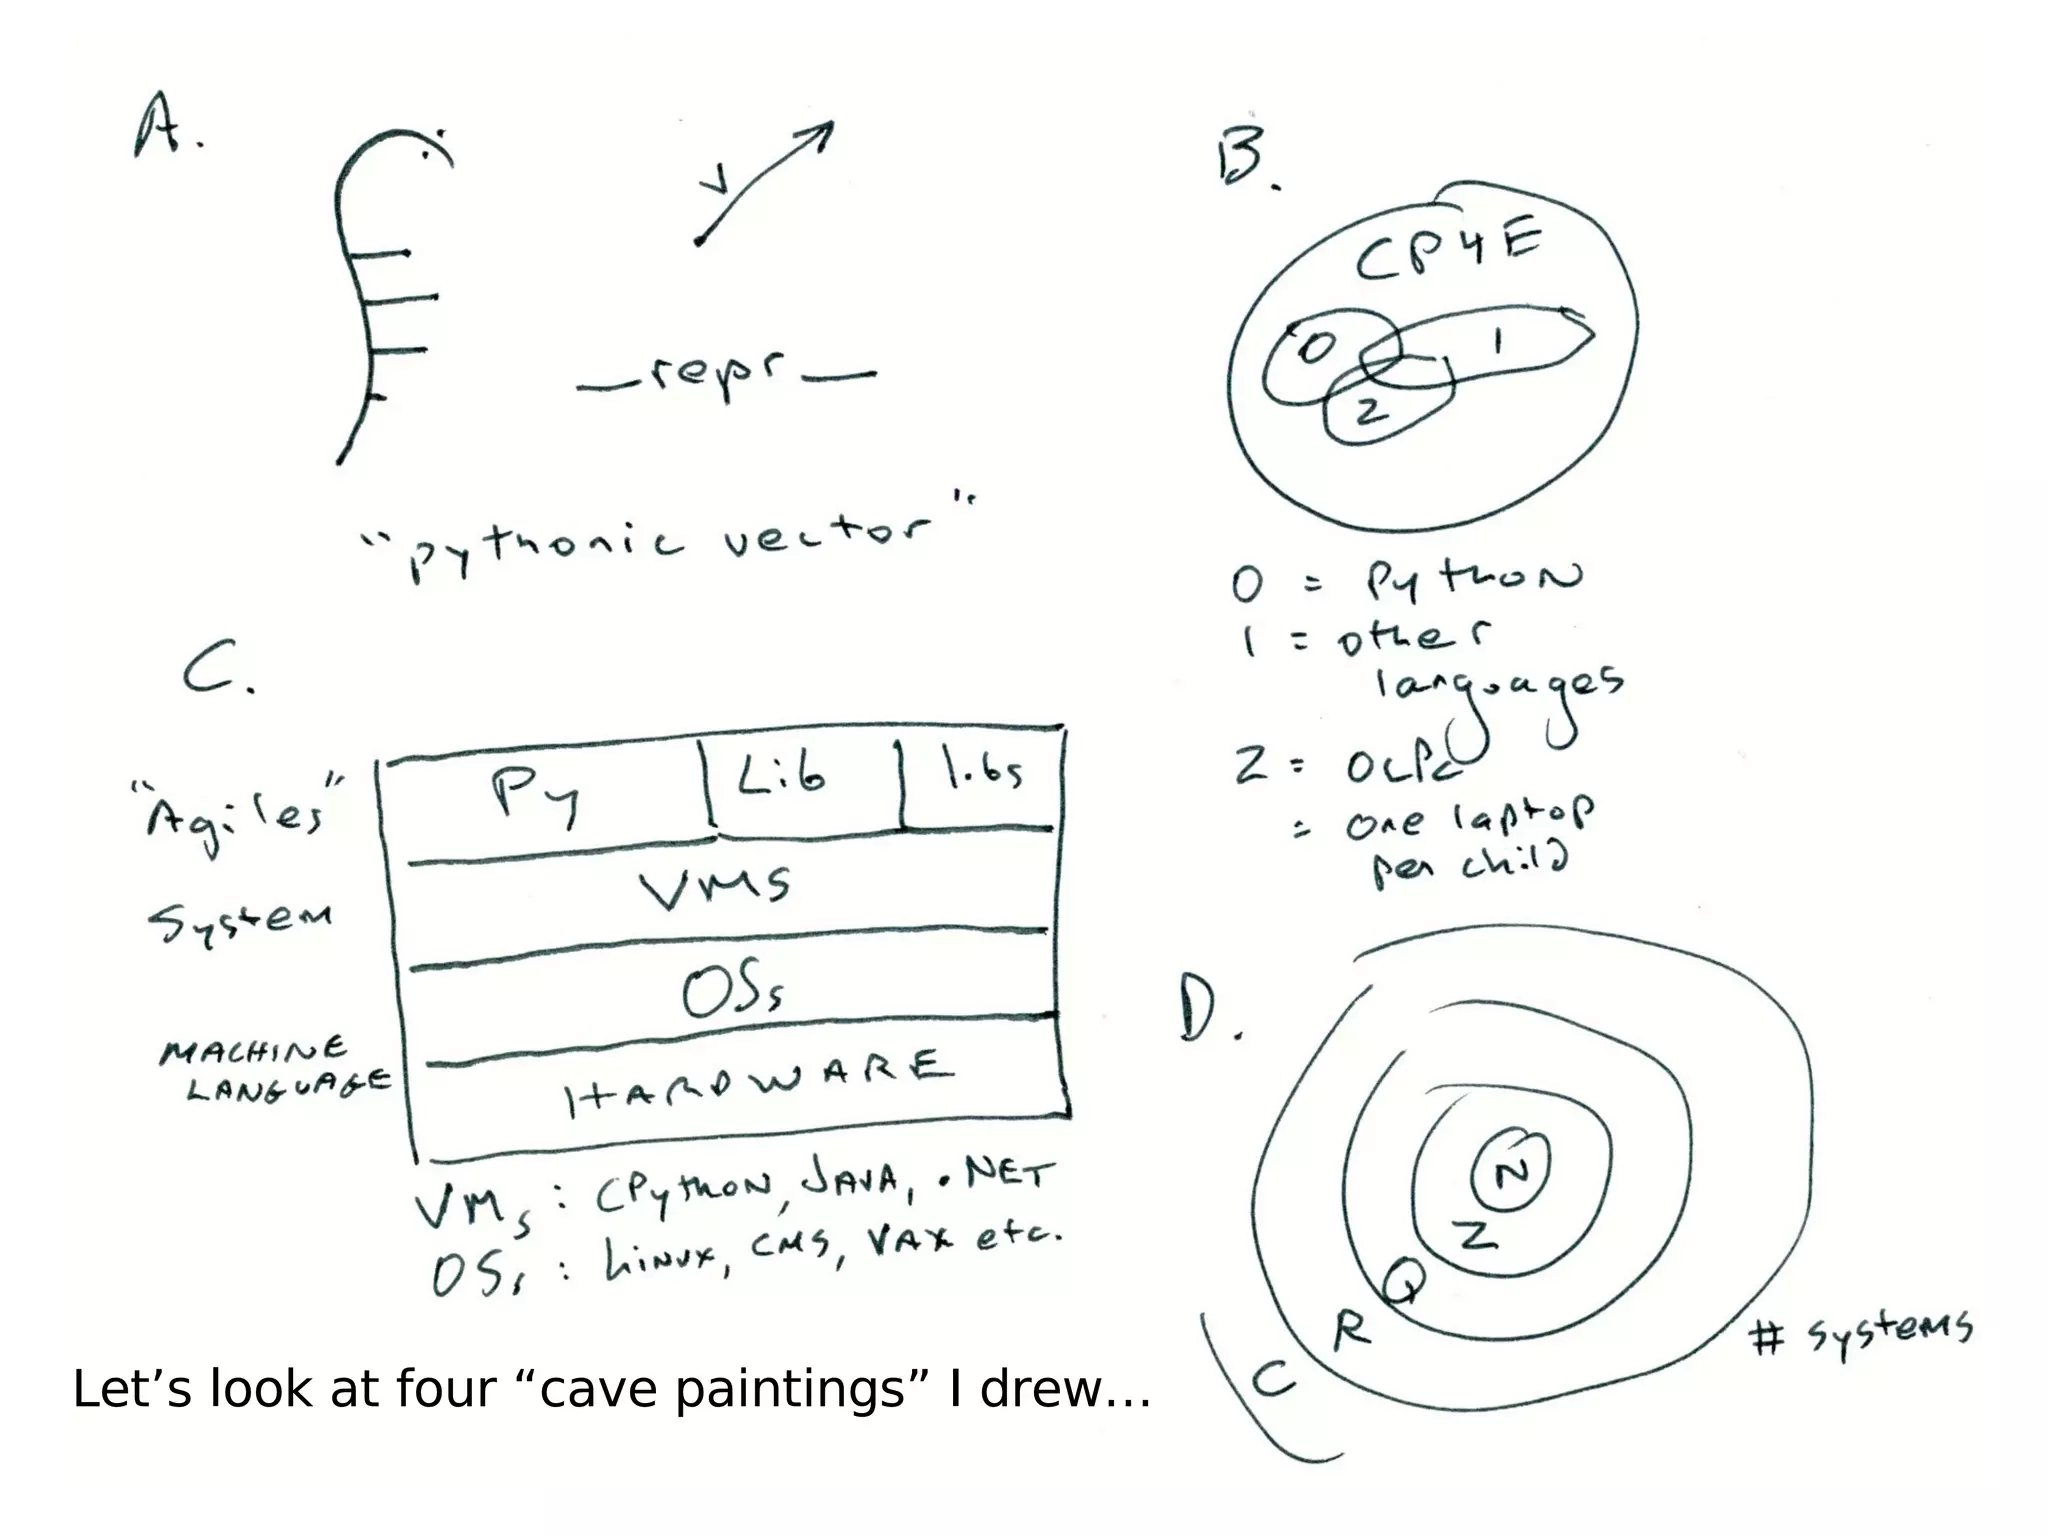 A.
V
__repr__
"pythonic vector"
B.
CP4E
0
1
2
0 = Python
1 = other
languages
2 = OLPC
= one laptop
per child
C.
"Agiles"
Py
Lib
libs
System
VMs
OSs
MACHINE
LANGUAGE
HARDWARE
VMs : CPython, JAVA, .NET
OSs : Linux, CMS, VAX etc.
D.
N
Z
Q
R
C
# systems
Let’s look at four “cave paintings” I drew…